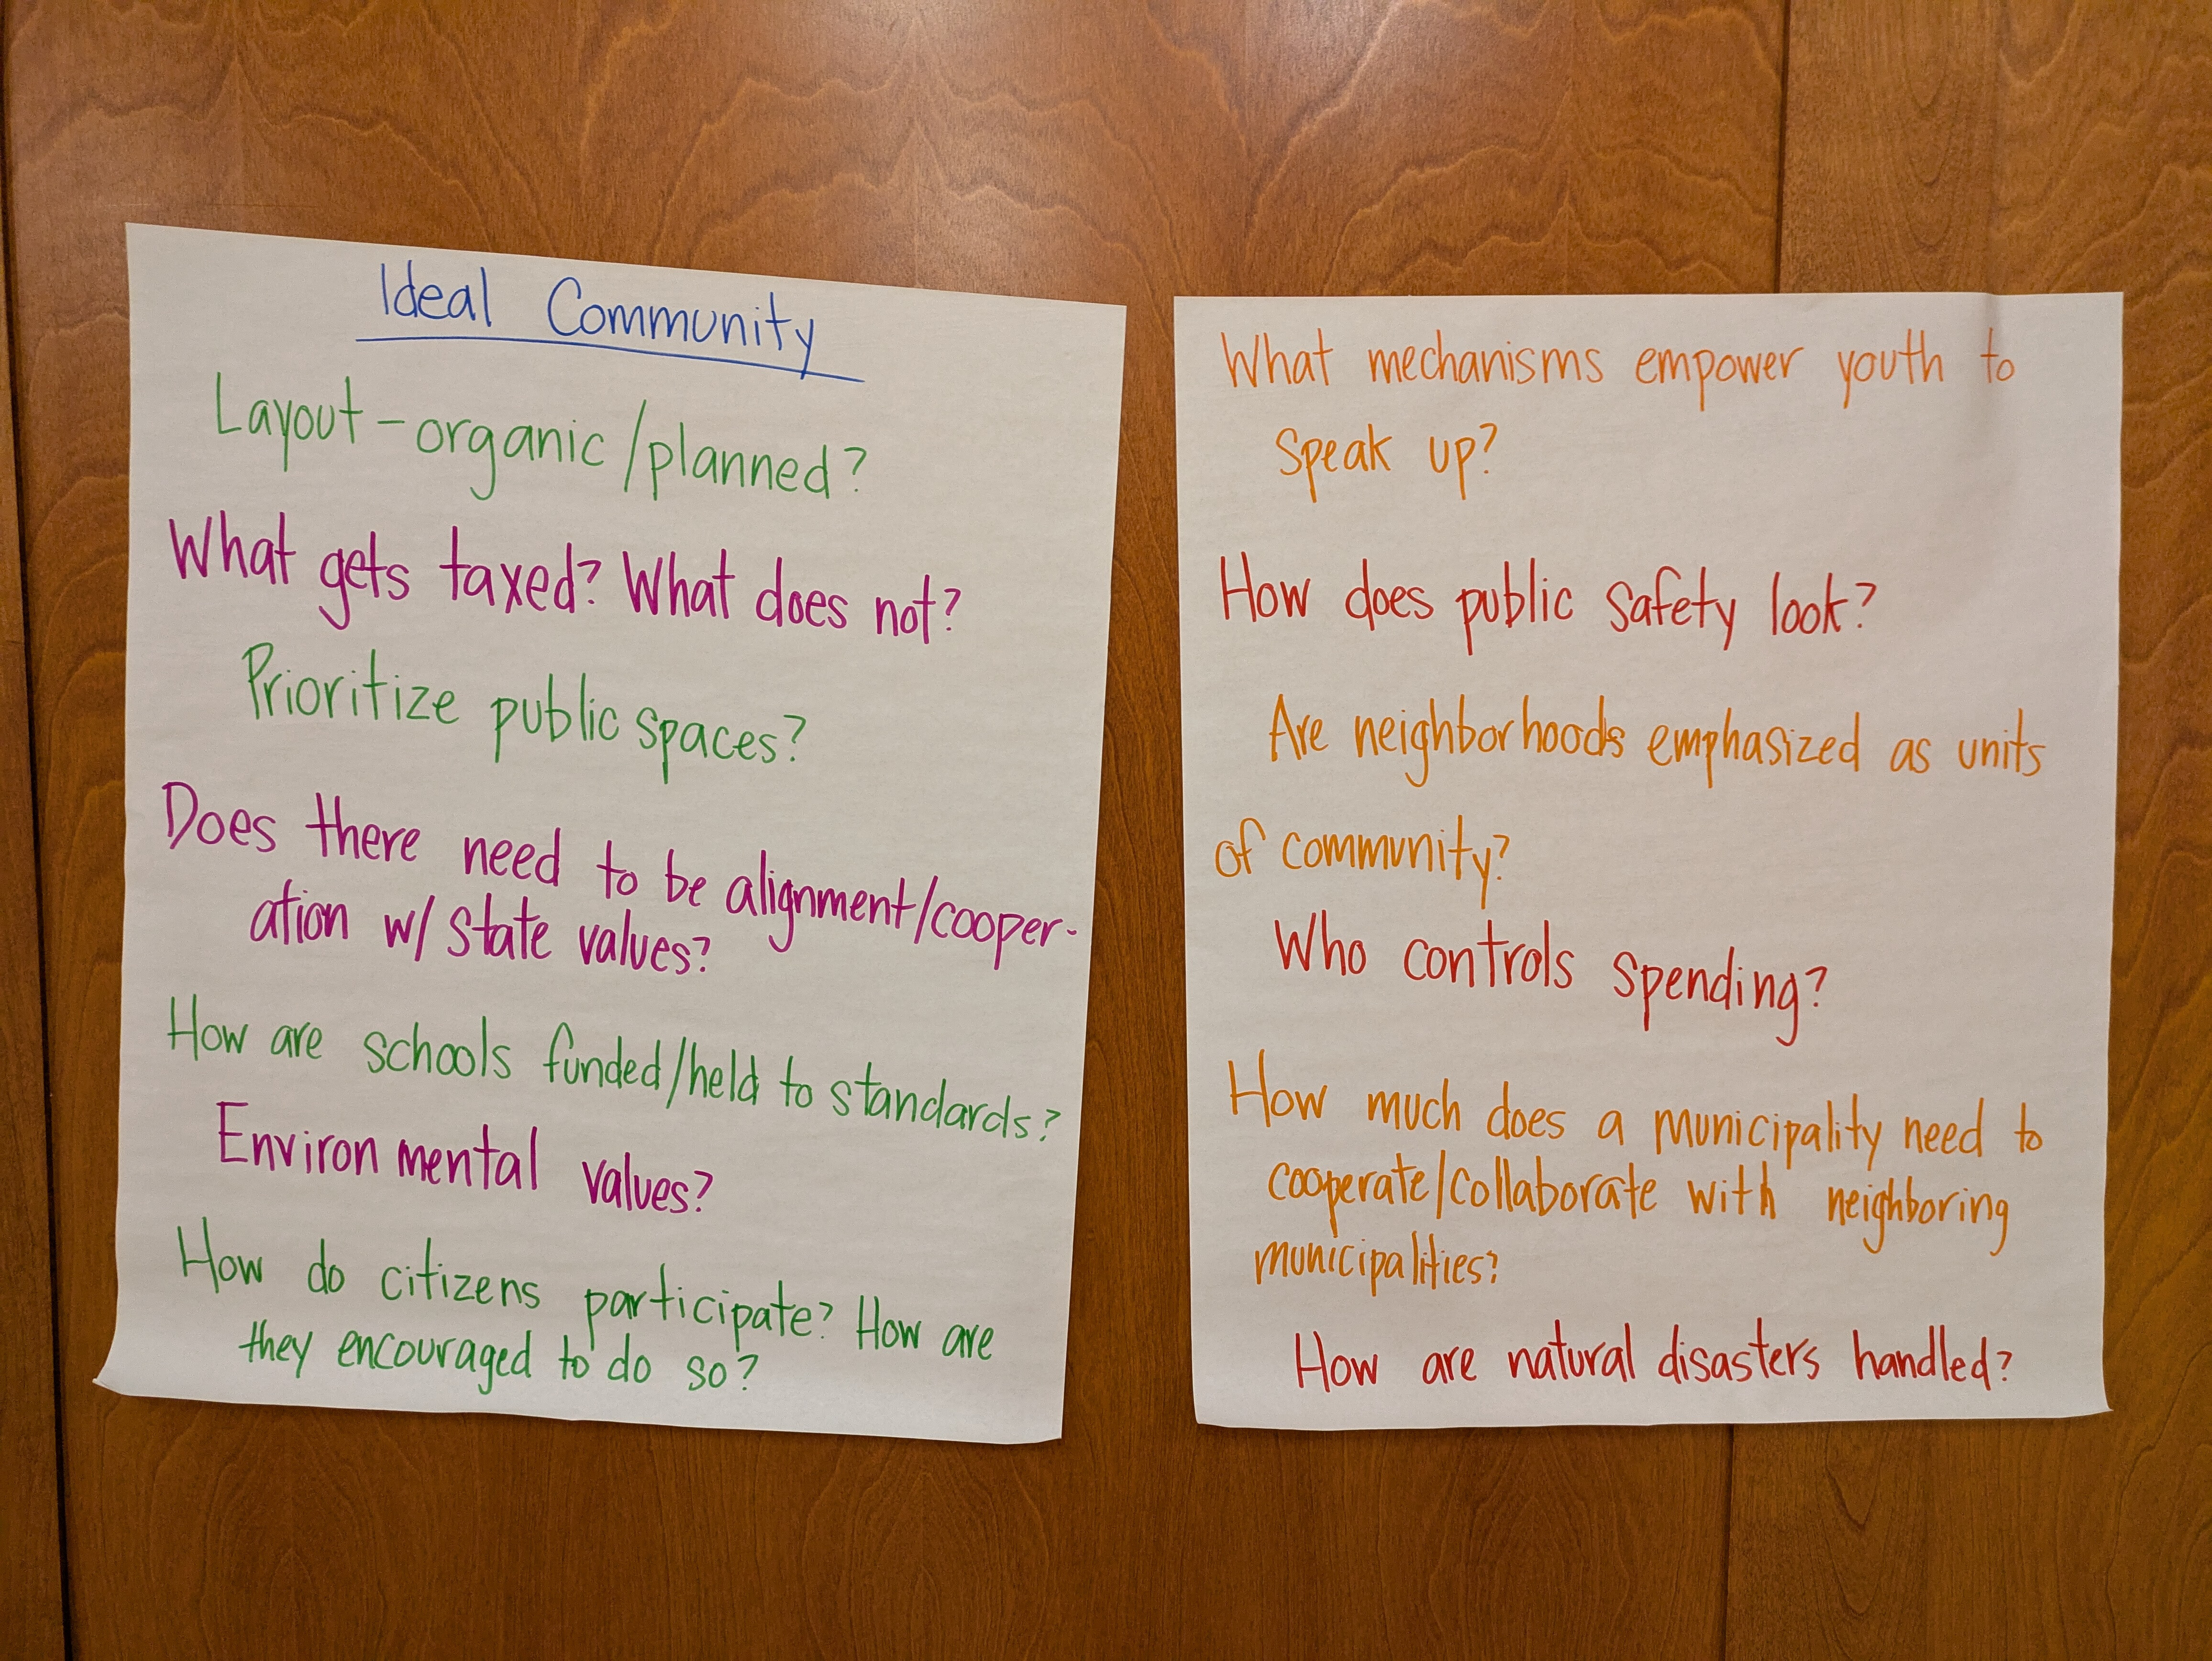 Ideal Community
Layout - organic/planned?
What gets taxed? What does not?
Prioritize public spaces?
Does there need to be alignment/cooper-
ation w/ state values?
How are schools funded/held to standards?
Environmental values?
How do citizens participate? How are
they encouraged to do so?
What mechanisms empower youth to
speak up?
How does public safety look?
Are neighborhoods emphasized as units
of community?
Who controls spending?
How much does a municipality need to
cooperate/collaborate with neighboring
municipalities?
How are natural disasters handled?